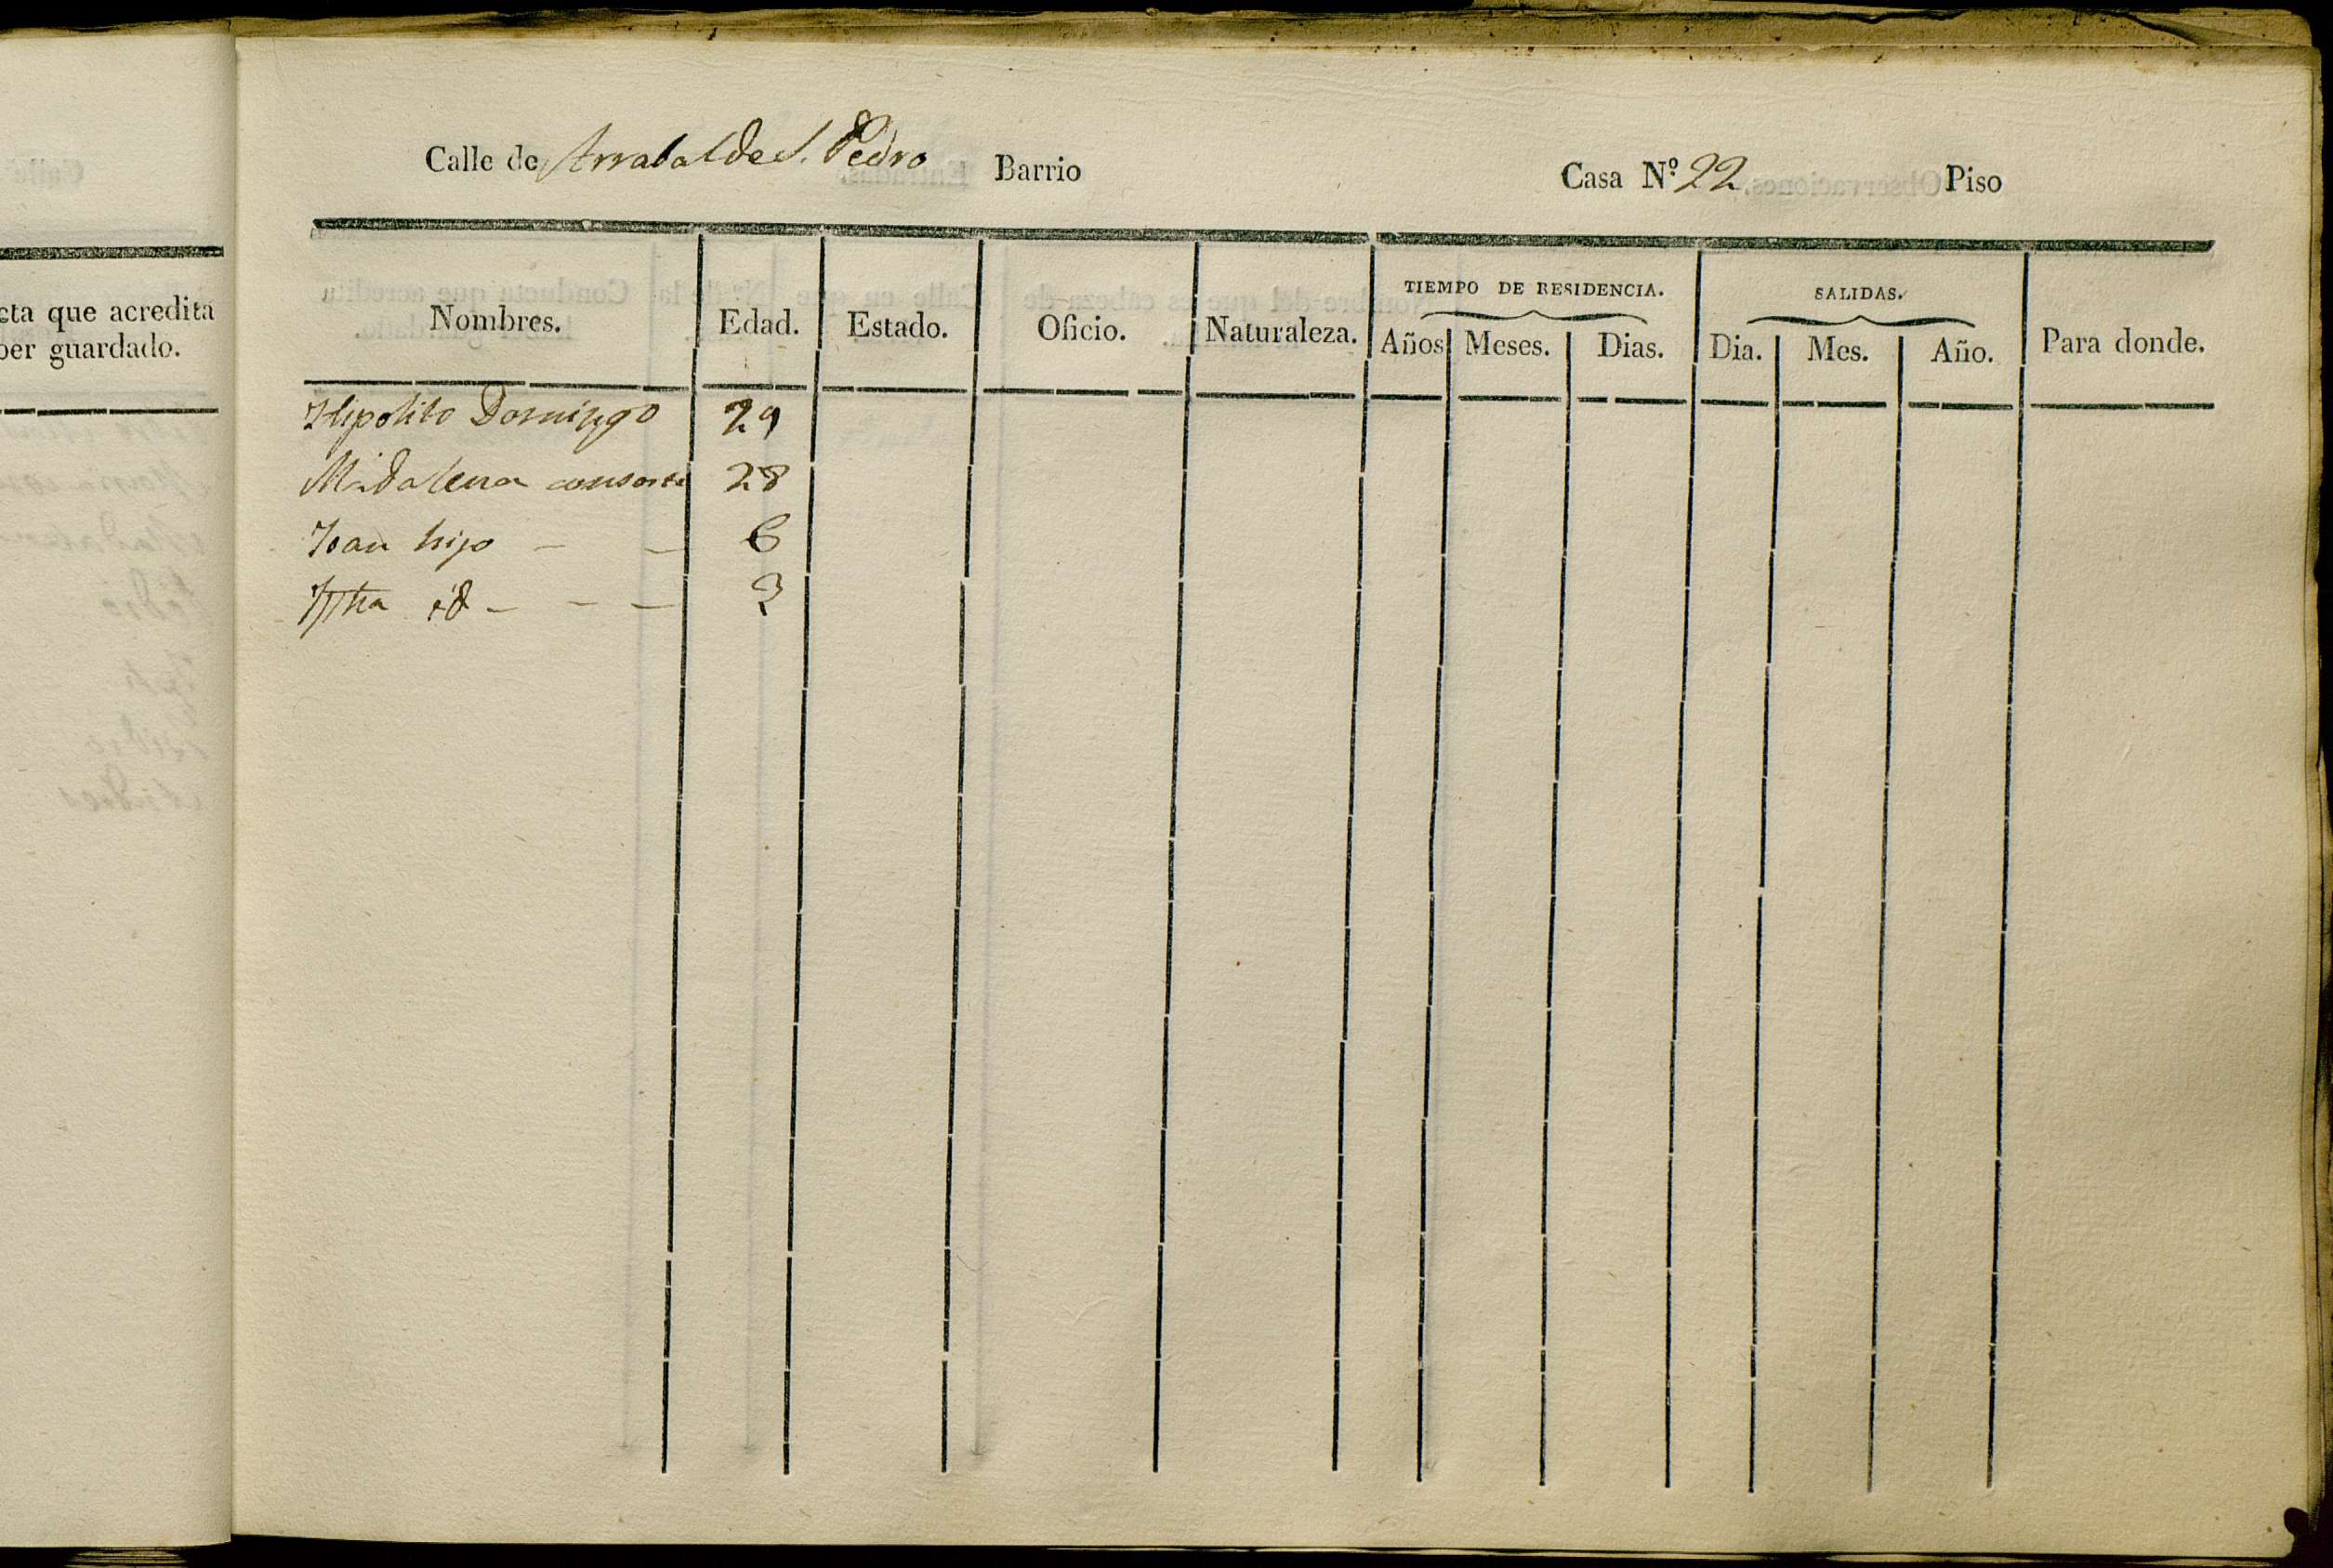 cta que acredita
ber guardado.
Calle de Arrabal de S. Pedro Barrio Casa N.º 22 Piso
TIEMPO DE RESIDENCIA. SALIDAS.
Nombres. Edad. Estado. Oficio. Naturaleza. Años Meses. Dias. Dia. Mes. Año. Para donde.
Hipolito Domingo 29
Madalena consorte 28
Joan hijo - - 6
id - - - 3